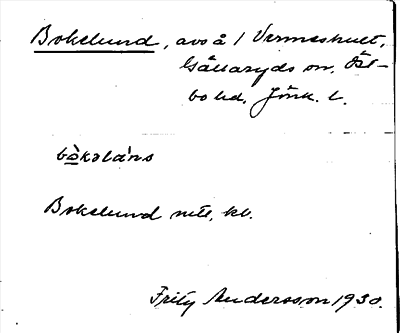 Bokelund, avs å 1 Vrmeshult,
Gällaryds sn. Öst-
bo hd. Jönk. l.
bòkəláns
Bokelund mtl, kb.
Fritz Andersson 1930.